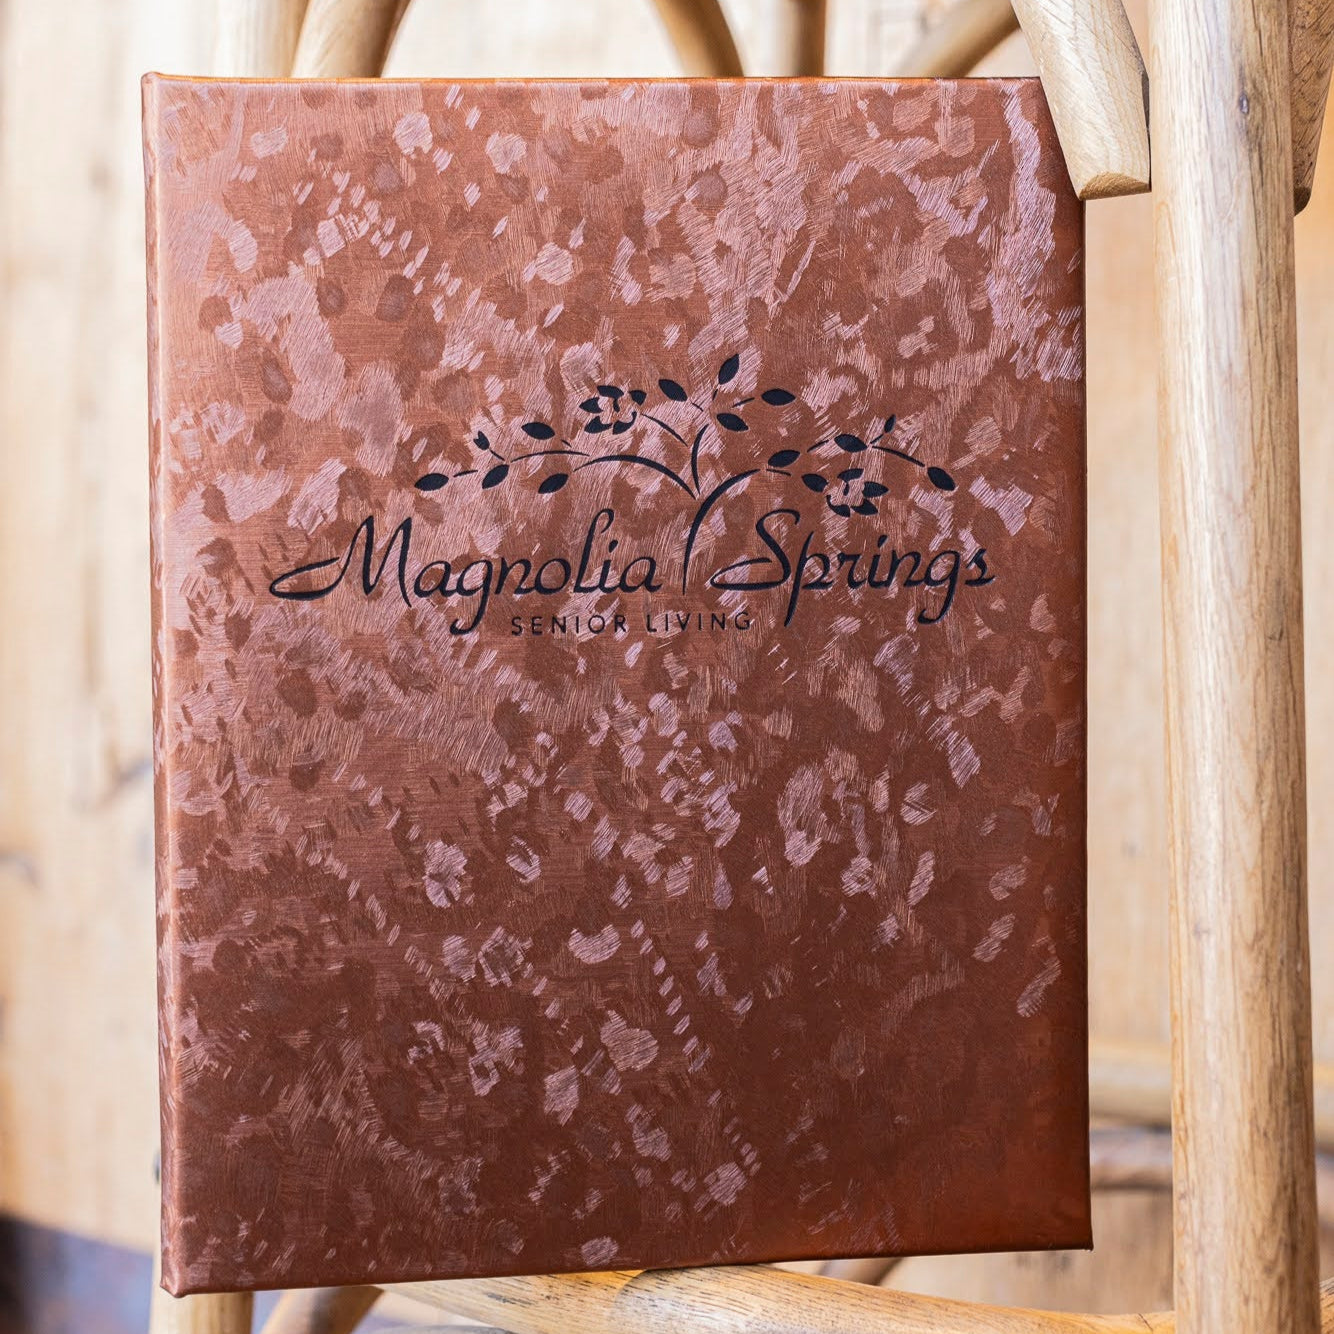 Magnolia Springs
SENIOR LIVING